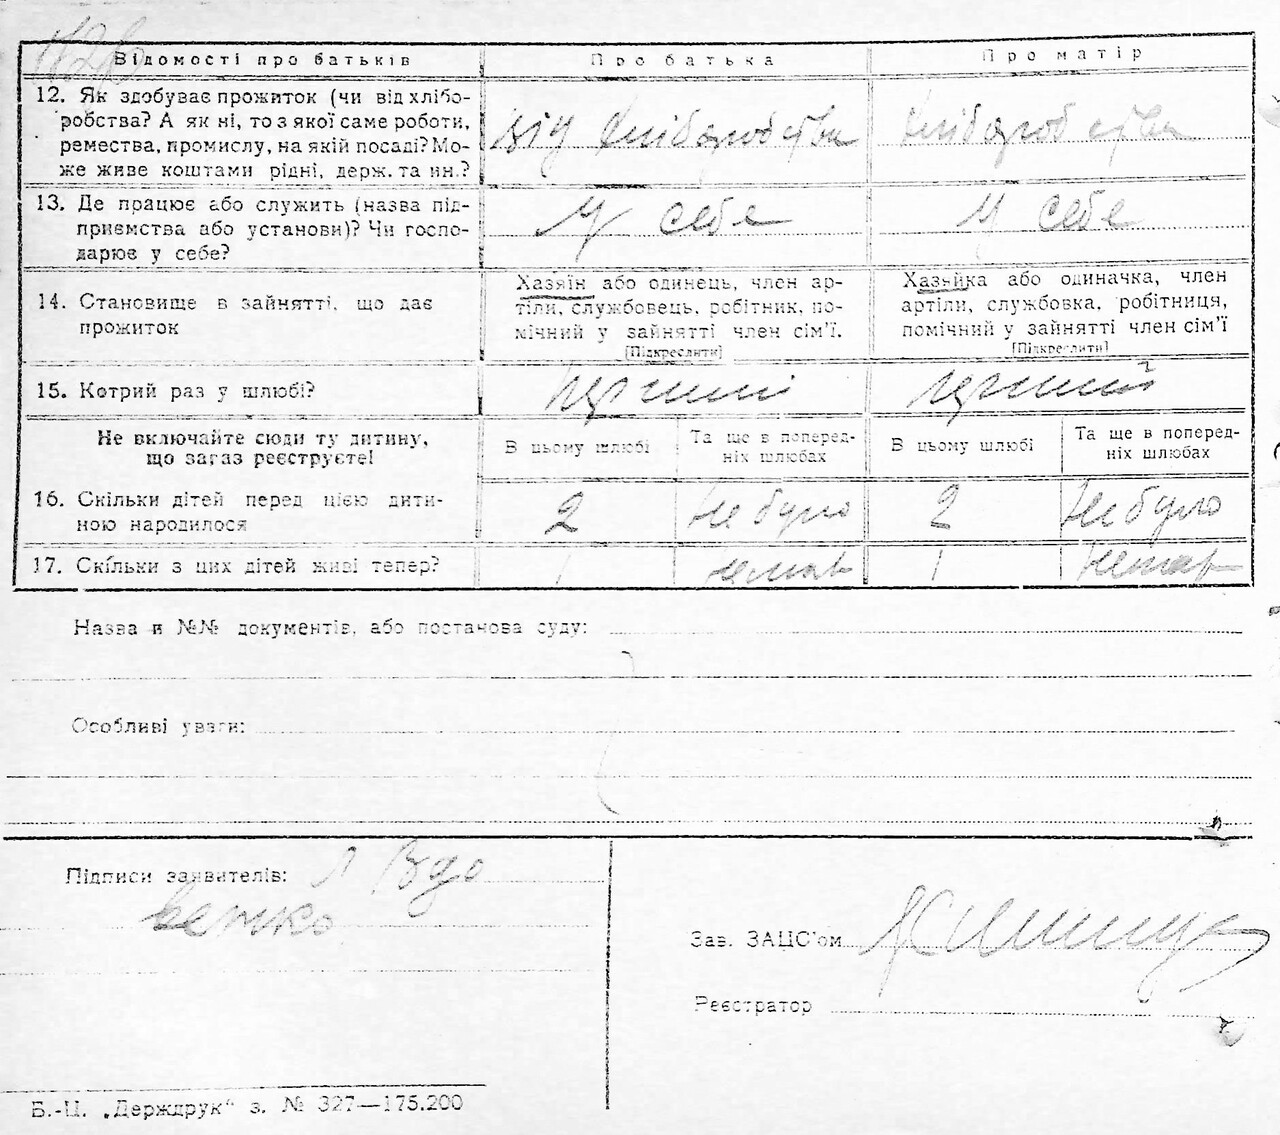 Відомості про батьків Про батька Про матір
12. Як здобуває прожиток (чи від хлібо-
робства? А як ні, то з якої саме роботи,
ремества, промислу, на якій посаді? Мо-
же живе коштами рідні, держ. та ин.?
від хліборобства
хліборобства
13. Де працює або служить (назва під-
приємства або установи)? Чи госпо-
дарює у себе?
У себе
У себе
14. Становище в зайнятті, що дає
прожиток
Хазяїн або одинець, член ар-
тіли, службовець, робітник, по-
мічний у зайнятті член сім'ї.
[Підкреслити]
Хазяйка або одиначка, член
артіли, службовка, робітниця,
помічний у зайнятті член сім'ї
[Підкреслити]
15. Котрий раз у шлюбі?
Не включайте сюди ту дитину,
що зараз реєструєте!
В цьому шлюбі
Та ще в поперед-
ніх шлюбах
В цьому шлюбі
Та ще в поперед-
ніх шлюбах
16. Скільки дітей перед цією дити-
ною народилося
2 Не було 2 Не було
17. Скільки з цих дітей живі тепер?
1 немає 1 немає
Назва и №№ документів, або постанова суду:
Особливі уваги:
Підписи заявителів:
Зав. ЗАЦС'ом
Реєстратор
Б.-Ц. „Держдрук“ з. № 327—175.200